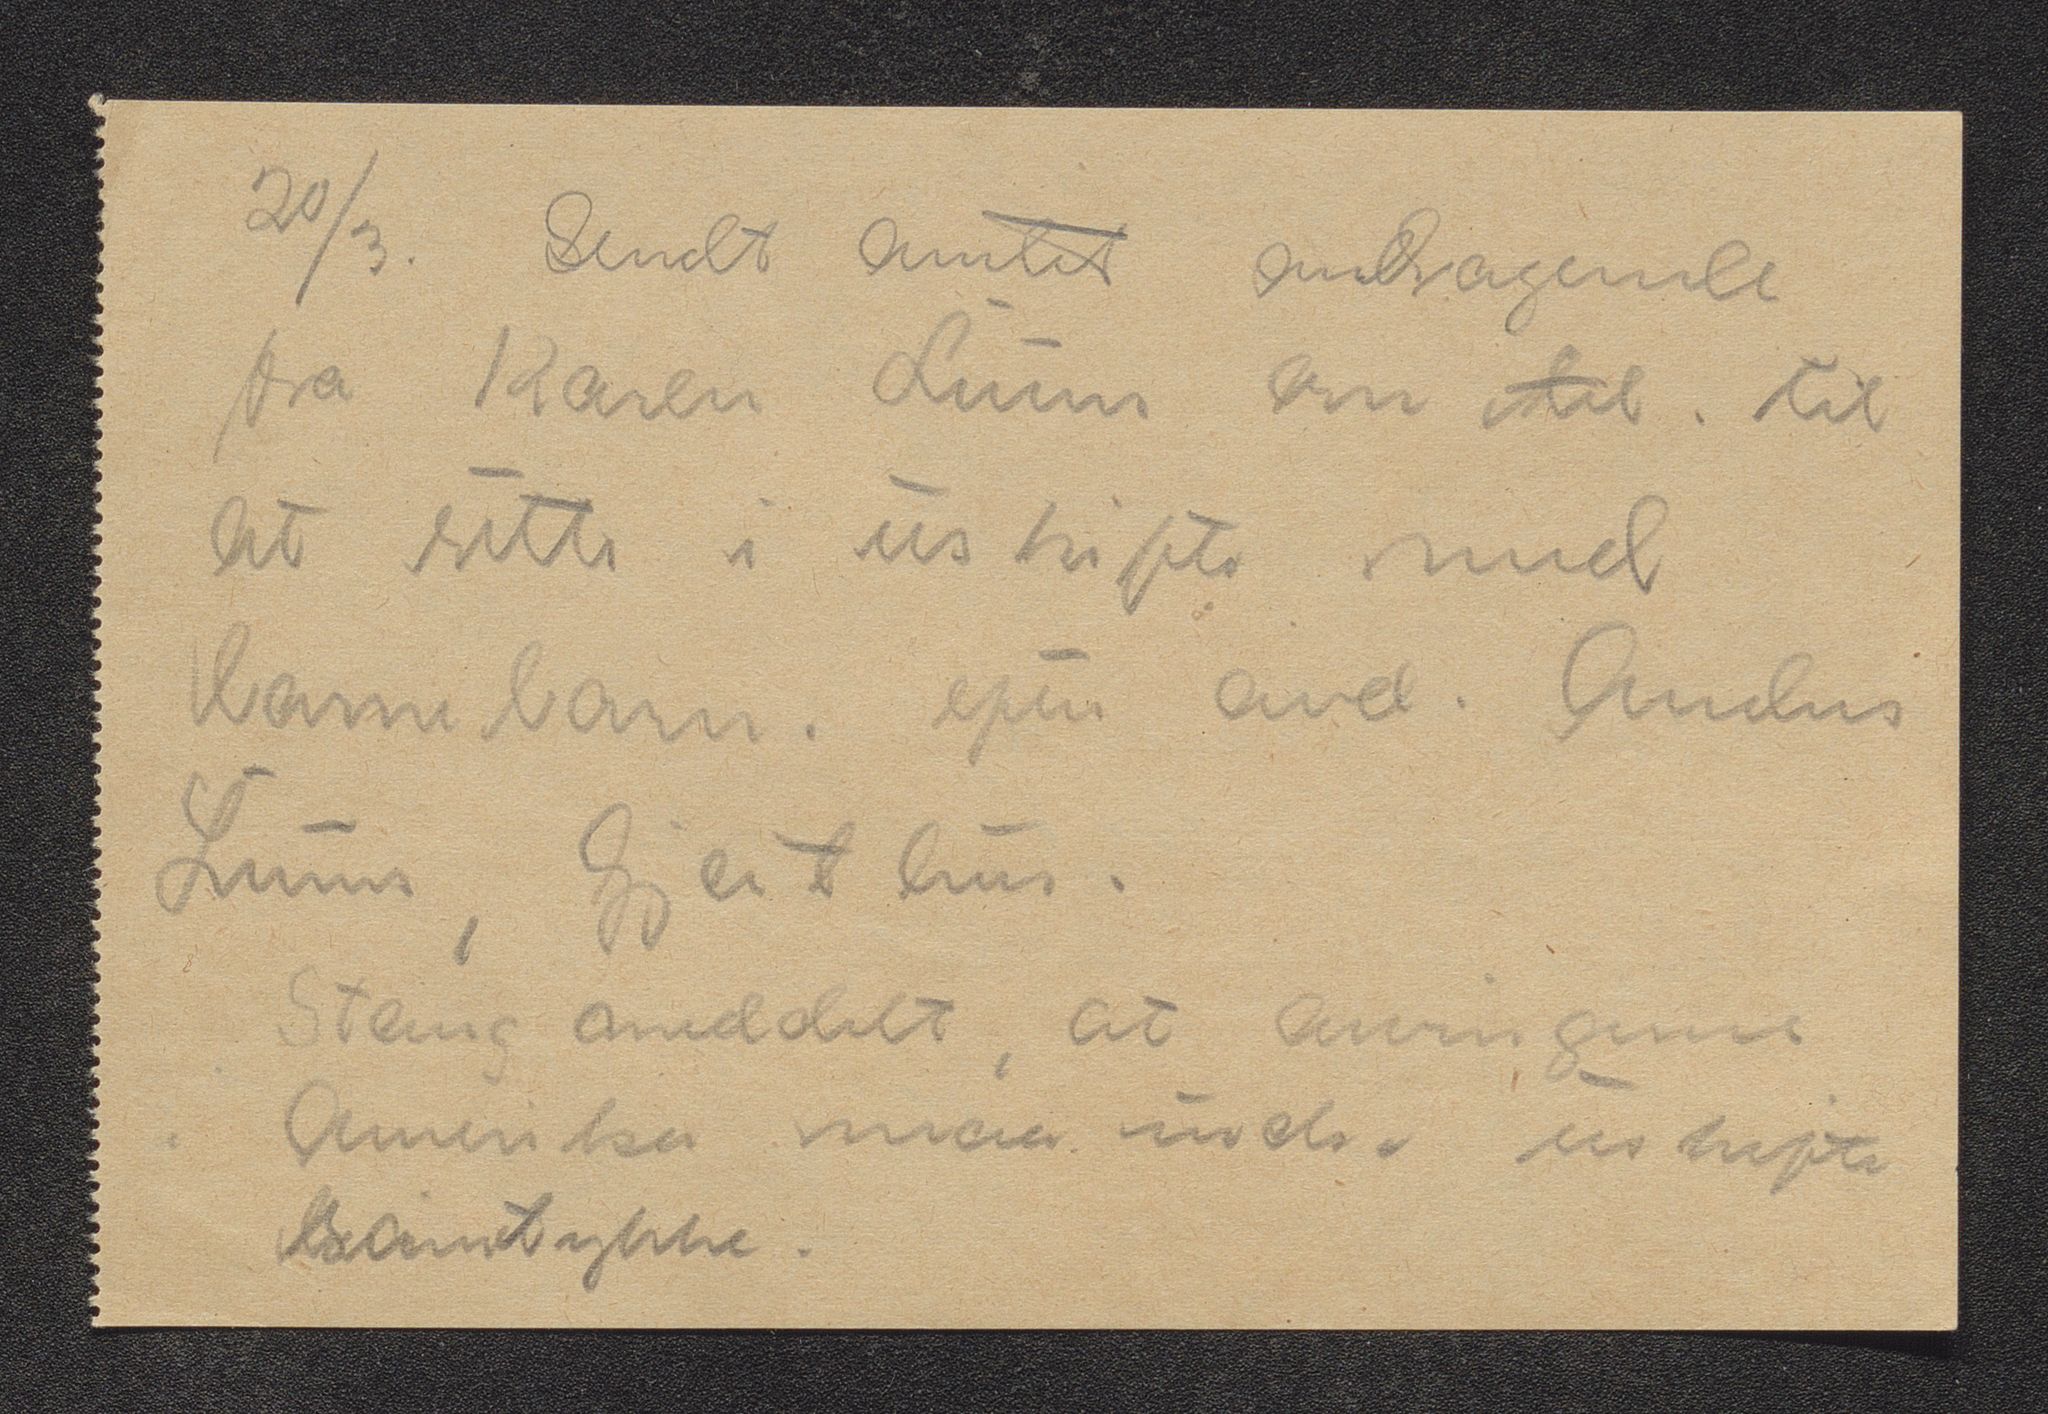 20/3. Sendt amtet andragende
fra Karen Luun om till. til
at sitte i uskifte med
barnebarn. efter avd. Anders
Luun, Gjeithus.
Stang meddelt, at arvingene
Amerika maa unds. uskifte
samtykke.